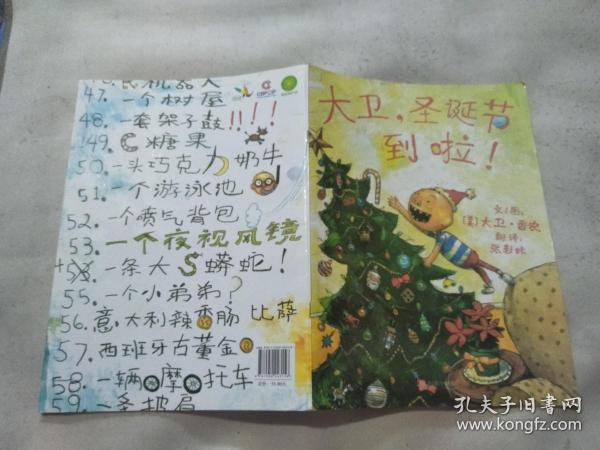 47. 一个树屋
48. 一套架子鼓!!!!
49. 糖果
50. 一头巧克力奶牛
51. 一个游泳池
52. 一个喷气背包
53. 一个夜视风镜
一条大S蟒蛇!
55. 一个小弟弟?
56. 意大利辣香肠比萨
57. 西班牙古董金
58. 一辆摩托车
59. 一条披肩
大卫,圣诞节
到啦!
文/图:
[美]大卫·香农
翻译:
张彩妹
孔夫子旧书网
www.kongfz.com